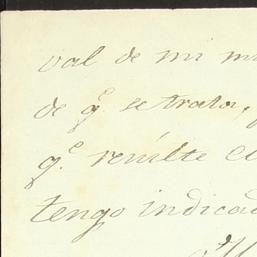 val de mi
de q.e se trata,
q.e resulte
tengo indicad